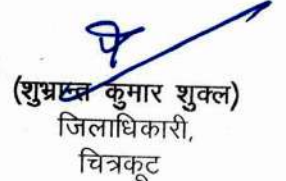 (शुभ्रान्त कुमार शुक्ल)
जिलाधिकारी,
चित्रकूट